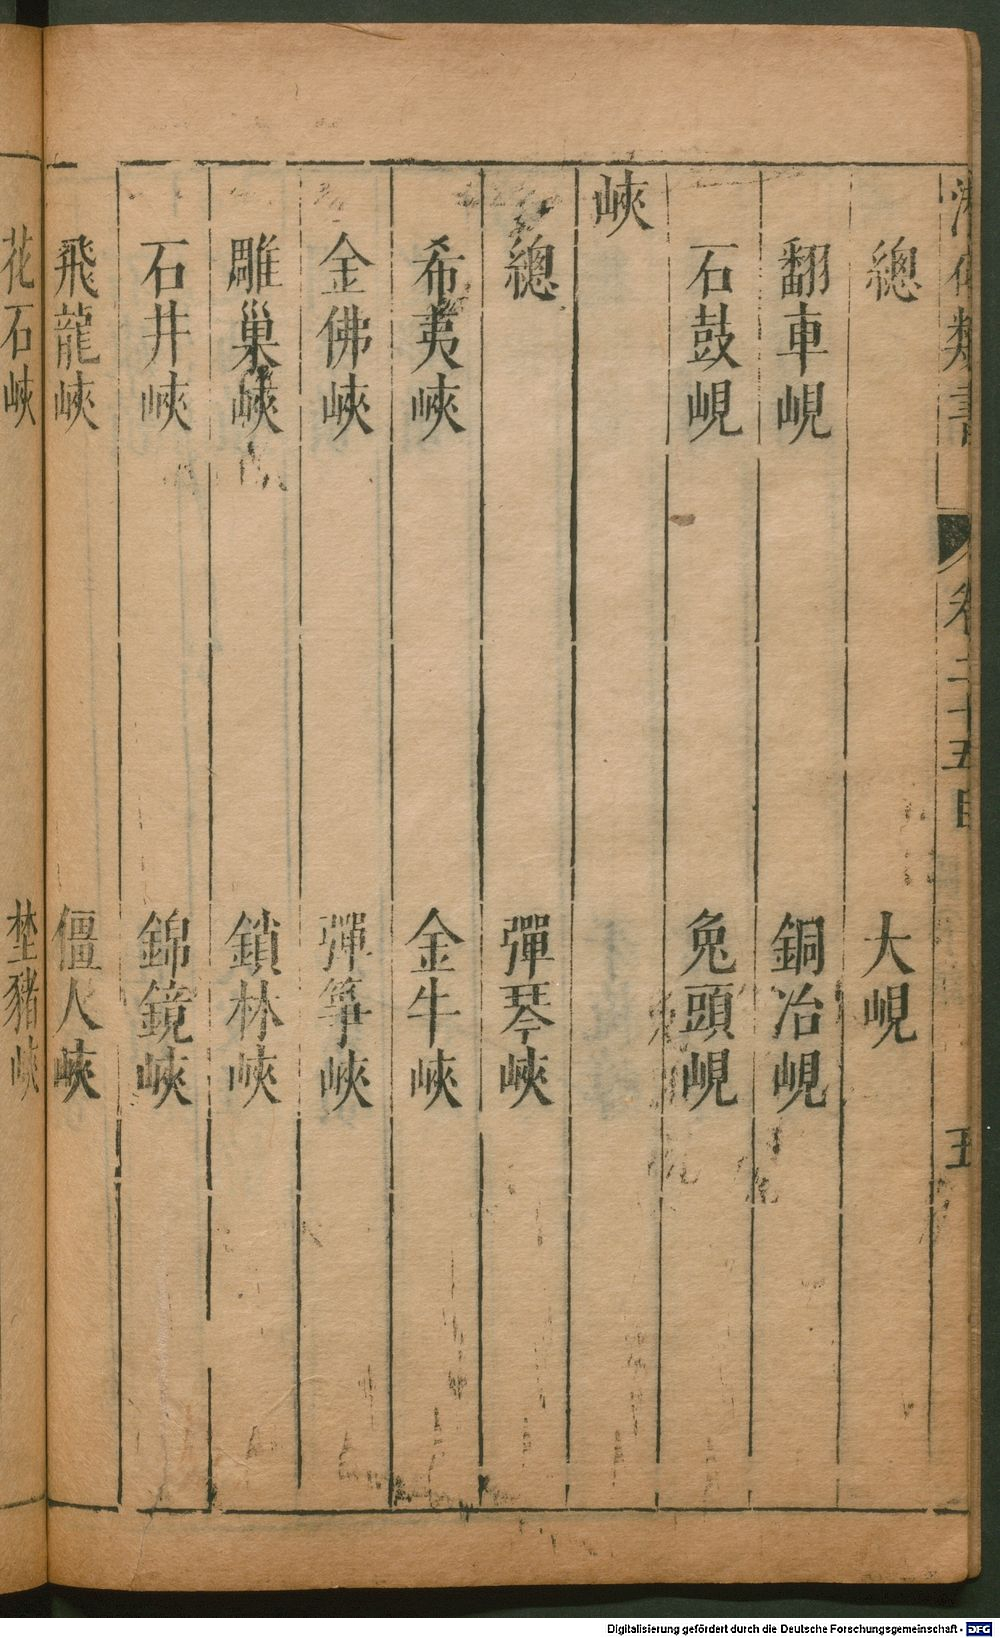 類書 卷二十五目 五
總 大峴
翻車峴 銅冶峴
石鼓峴 兔頭峴
峽
總 彈琴峽
希夷峽 金牛峽
金佛峽 彈箏峽
雕巢峽 鎖林峽
石井峽 錦鏡峽
飛龍峽 僵人峽
花石峽 埜豬峽
Digitalisierung gefördert durch die Deutsche Forschungsgemeinschaft - DFG